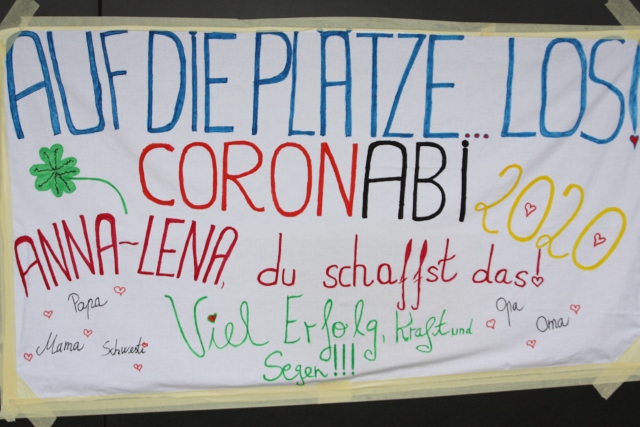 AUF DIE PLÄTZE... LOS!
CORONABI 2020
ANNA-LENA, du schaffst das!
Viel Erfolg, Kraft und
Segen!!!
Papa
Mama Schwesti
Opa
Oma